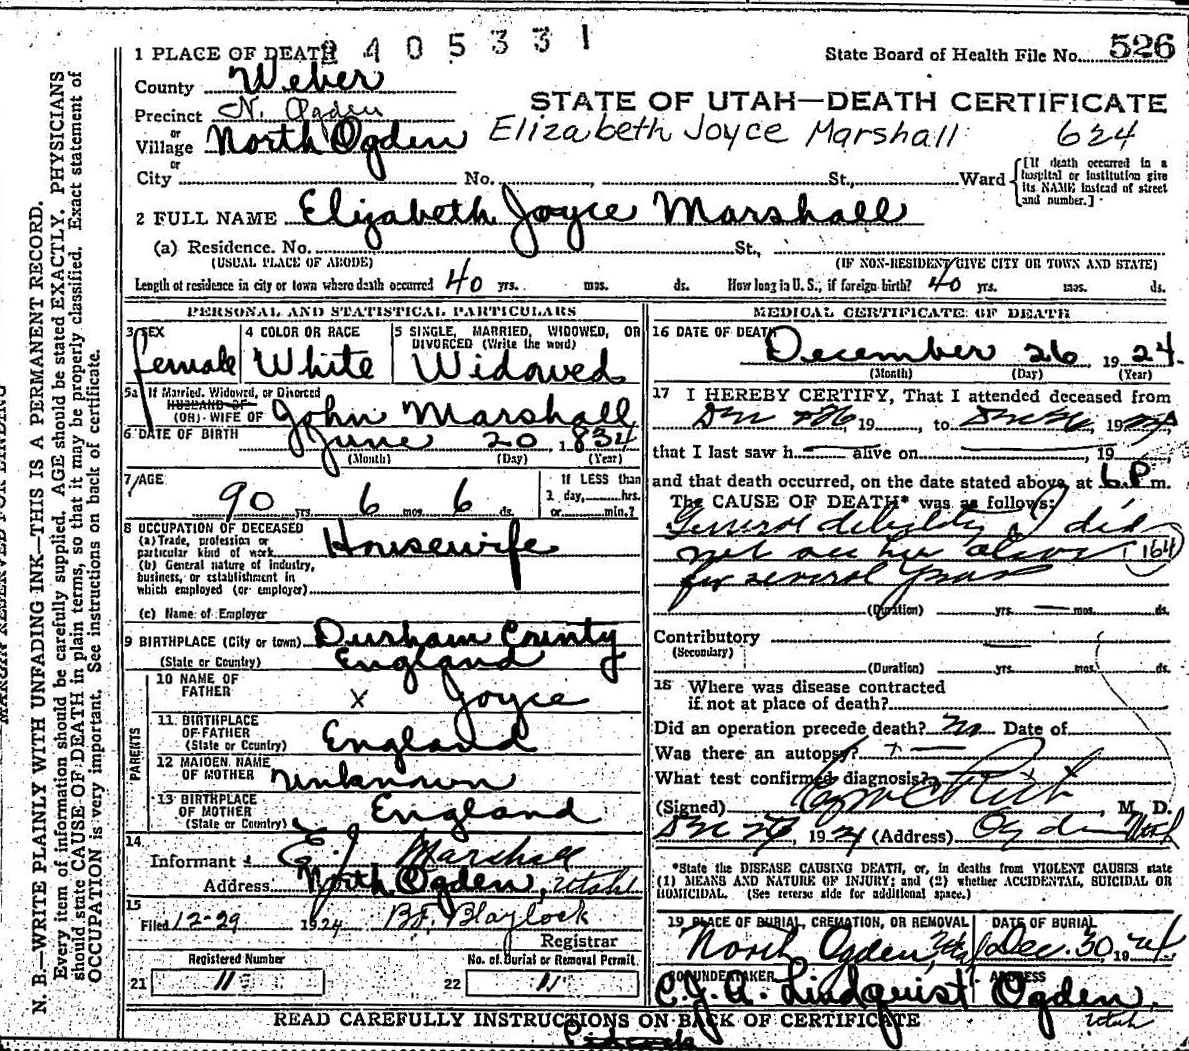 1 PLACE OF DEATH 2405331 State Board of Health File No. 526
County Weber
Precinct N. Ogden STATE OF UTAH—DEATH CERTIFICATE
or
Village North Ogden Elizabeth Joyce Marshall 624
or
City No. St., Ward [If death occurred in a hospital or institution give its NAME instead of street and number.]
2 FULL NAME Elizabeth Joyce Marshall
(a) Residence. No. St.,
(USUAL PLACE OF ABODE) (IF NON-RESIDENT GIVE CITY OR TOWN AND STATE)
Length of residence in city or town where death occurred 40 yrs. mos. ds. How long in U. S., if foreign birth? 40 yrs. mos. ds.
PERSONAL AND STATISTICAL PARTICULARS
3 SEX 4 COLOR OR RACE 5 SINGLE, MARRIED, WIDOWED, OR
DIVORCED (Write the word)
female White Widowed
5a If Married, Widowed, or Divorced
HUSBAND OF
(OR) WIFE OF John Marshall
6 DATE OF BIRTH June 20 1834
(Month) (Day) (Year)
7 AGE 90 yrs. 6 mos. 6 ds. If LESS than
1 day, hrs.
or min.?
8 OCCUPATION OF DECEASED
(a) Trade, profession or
particular kind of work Housewife
(b) General nature of industry,
business, or establishment in
which employed (or employer)
(c) Name of Employer
9 BIRTHPLACE (City or town) Durham County
(State or Country) England
PARENTS
10 NAME OF
FATHER x Joyce
11 BIRTHPLACE
OF FATHER
(State or Country) England
12 MAIDEN NAME
OF MOTHER unknown
13 BIRTHPLACE
OF MOTHER
(State or Country) England
14
Informant E. J. Marshall
Address North Ogden, Utah
15
Filed 12-29 1924 B.F. Blaylock
Registrar
Registered Number No. of Burial or Removal Permit
21 11 22 11
MEDICAL CERTIFICATE OF DEATH
16 DATE OF DEATH December 26 1924.
(Month) (Day) (Year)
17 I HEREBY CERTIFY, That I attended deceased from
Dec 26, 19 , to Dec 26, 1924
that I last saw h alive on , 19
and that death occurred, on the date stated above, at 6 P. m.
The CAUSE OF DEATH* was as follows:
General debility I did
not see her alive (164)
for several years
(Duration) yrs. mos. ds.
Contributory
(Secondary)
(Duration) yrs. mos. ds.
18 Where was disease contracted
if not at place of death?
Did an operation precede death? no Date of
Was there an autopsy?
What test confirmed diagnosis?
(Signed) M. D.
Dec 29, 1924 (Address) Ogden Utah
*State the DISEASE CAUSING DEATH, or, in deaths from VIOLENT CAUSES state
(1) MEANS AND NATURE OF INJURY; and (2) whether ACCIDENTAL, SUICIDAL OR
HOMICIDAL. (See reverse side for additional space.)
19 PLACE OF BURIAL, CREMATION, OR REMOVAL DATE OF BURIAL
North Ogden, Utah Dec. 30, 1924
20 UNDERTAKER ADDRESS
C. J. A. Lindquist Ogden,
Utah
READ CAREFULLY INSTRUCTIONS ON BACK OF CERTIFICATE
MARGIN RESERVED FOR BINDING
N. B.—WRITE PLAINLY WITH UNFADING INK—THIS IS A PERMANENT RECORD.
Every item of information should be carefully supplied. AGE should be stated EXACTLY. PHYSICIANS
should state CAUSE OF DEATH in plain terms, so that it may be properly classified. Exact statement of
OCCUPATION is very important. See instructions on back of certificate.